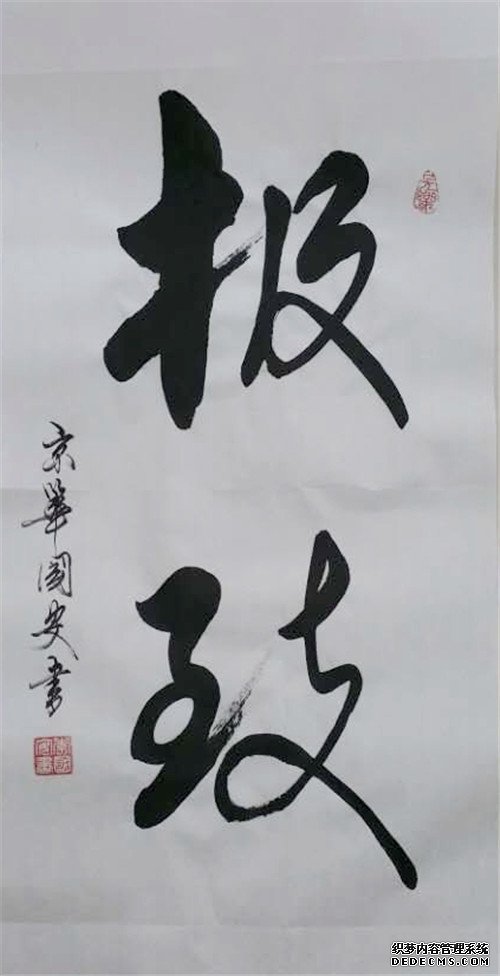 极致
京華國安書
织梦内容管理系统
DEDECMS.COM